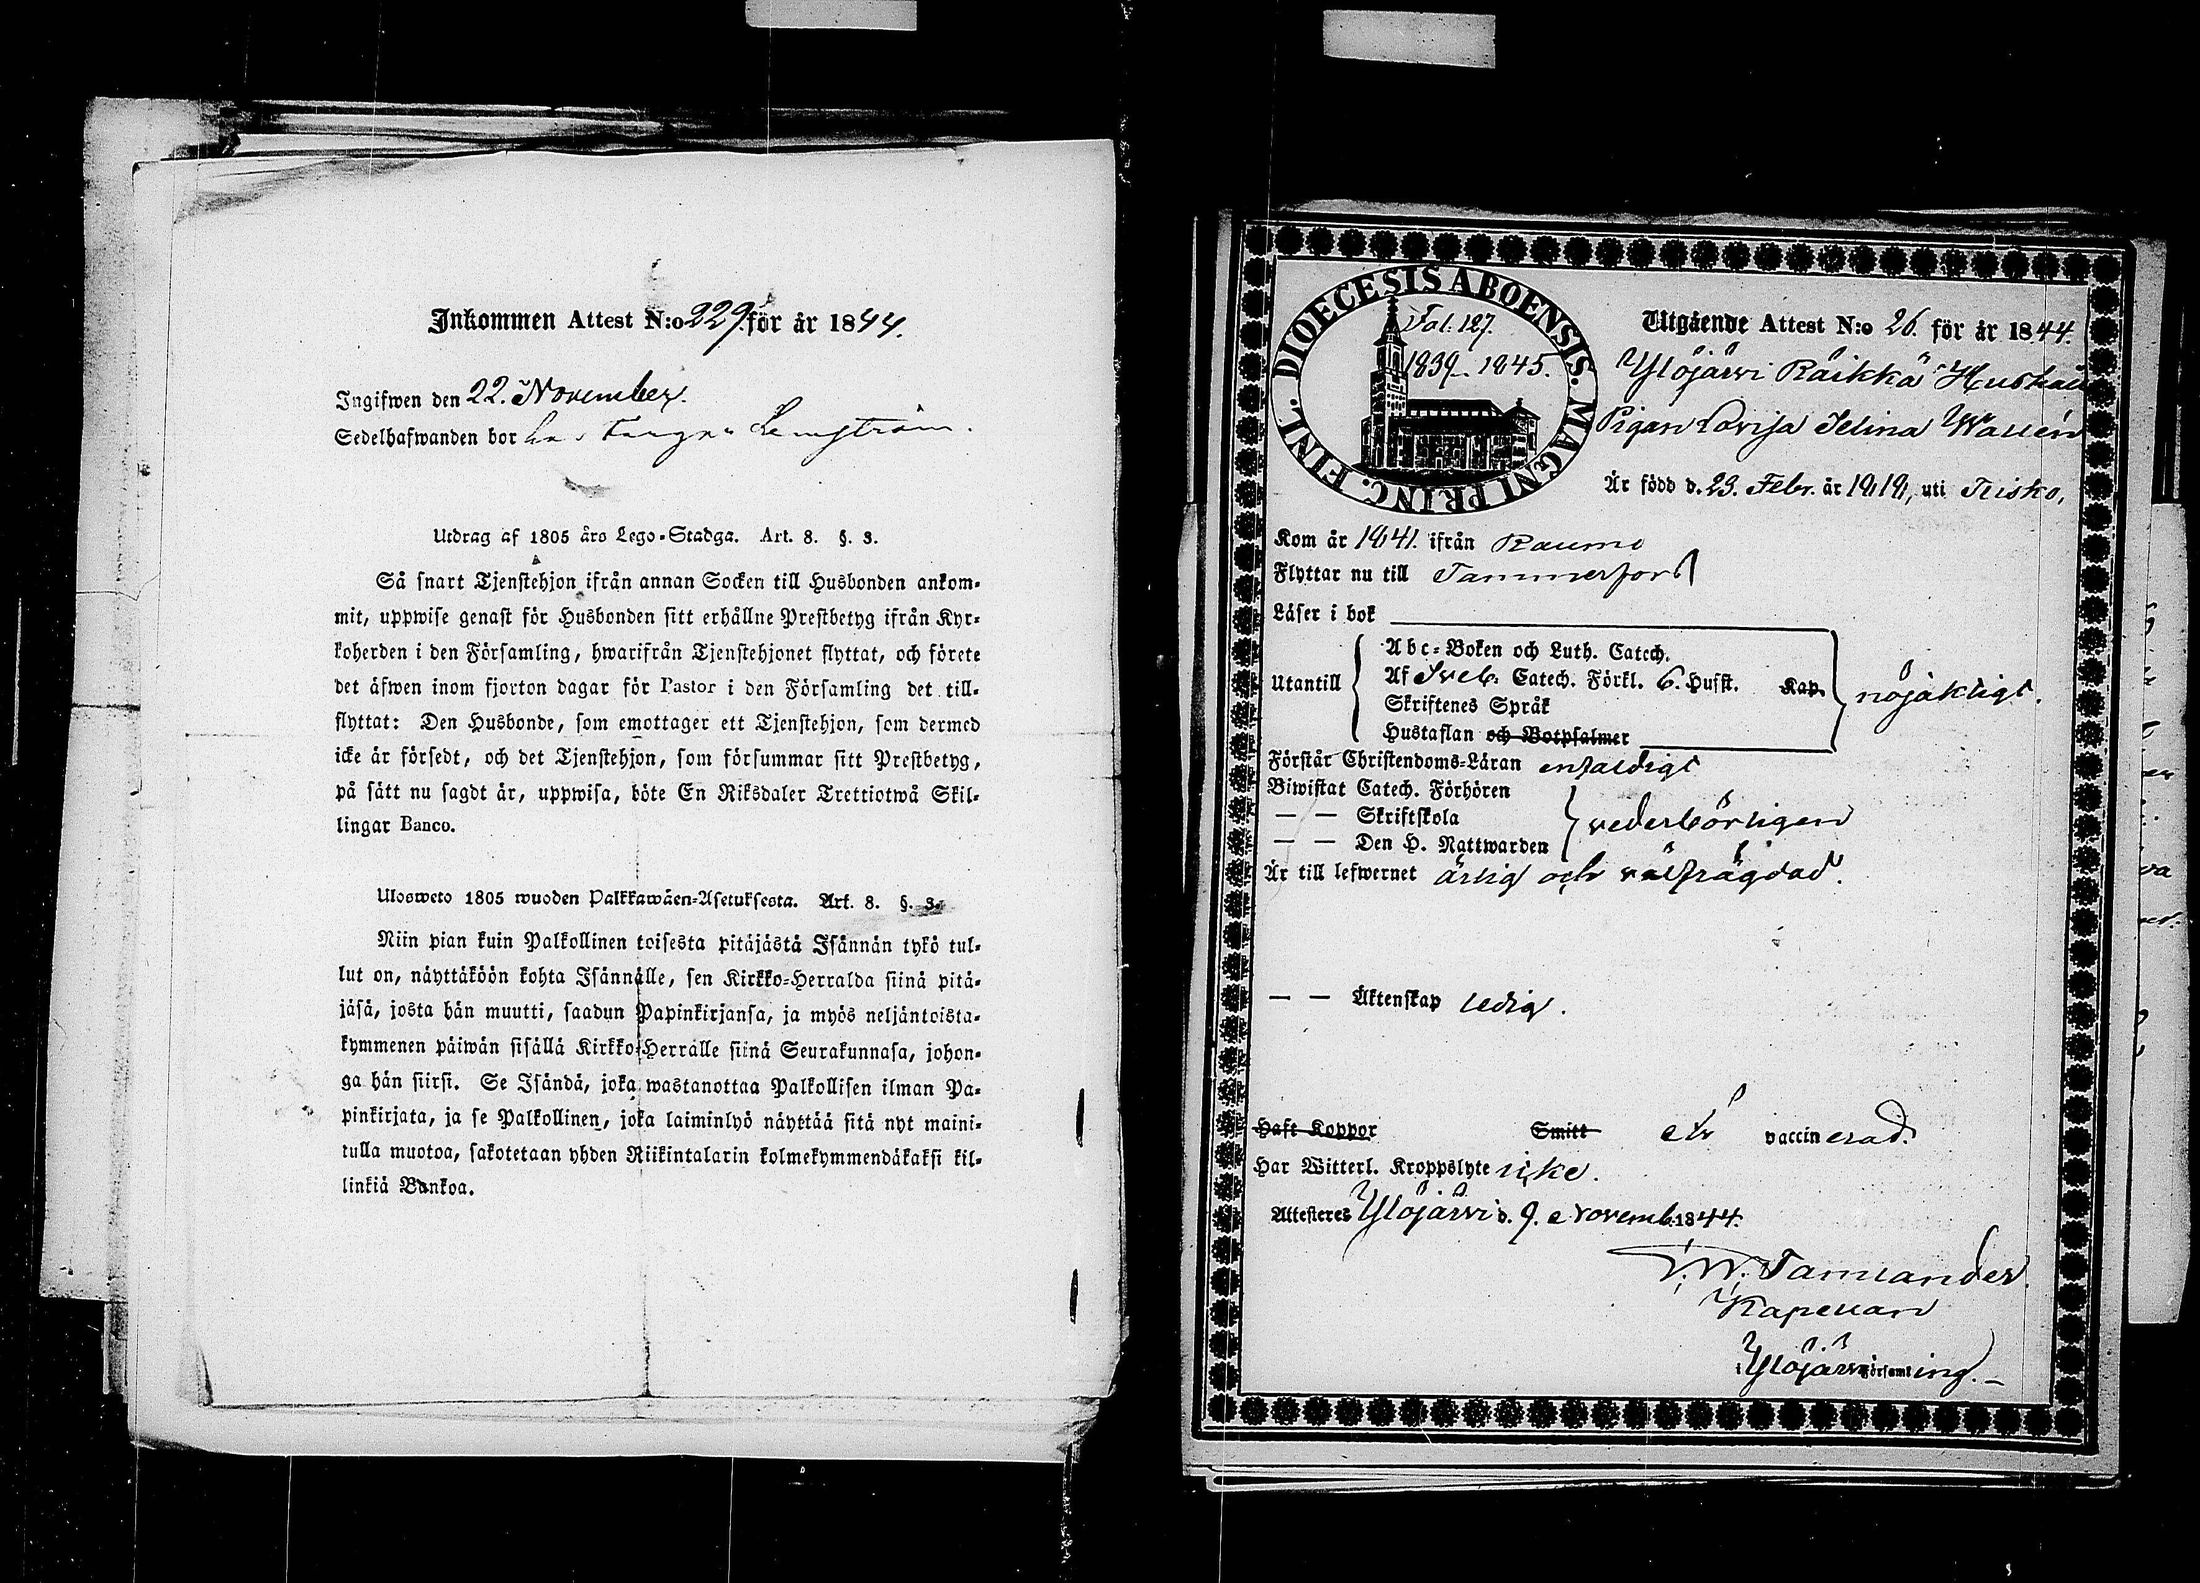 Inkommen Attest N:o 229. för år 1844.
Ingifwen den 22. November.
Sedelhafwanden bor hos Lengström.
Utdrag af 1805 års Lego-Stadga. Art. 8. §. 3.
Så snart Tjenstehjon ifrån annan Socken till Husbonden ankom-
mit, uppwise genast för Husbonden sitt erhållne Prestbetyg ifrån Kyr-
koherden i den Församling, hwarifrån Tjenstehjonet flyttat, och förete
det äfwen inom fjorton dagar för Pastor i den Församling det till-
flyttat: Den Husbonde, som emottager ett Tjenstehjon, som dermed
icke är försedt, och det Tjenstehjon, som försummar sitt Prestbetyg,
på sätt nu sagdt är, uppwisa, böte En Riksdaler Trettiotwå Skil-
lingar Banco.
Ulosweto 1805 wuoden Palkkawäen-Asetuksesta. Art. 8. §. 3.
Niin pian kuin Palkollinen toisesta pitäjästä Isännän tykö tul-
lut on, näyttäköön kohta Isännälle, sen Kirkko-Herralda siinä pitä-
jäsä, josta hän muutti, saadun Papinkirjansa, ja myös neljäntoista-
kymmenen päiwän sisällä Kirkko-Herralle siinä Seurakunnasa, johon-
ga hän siirsi. Se Isändä, joka wastanottaa Palkollisen ilman Pa-
pinkirjata, ja se Palkollinen, joka laiminlyö näyttää sitä nyt maini-
tulla muotoa, sakotetaan yhden Riikintalarin kolmekymmendäkaksi kil-
linkiä Bankoa.
DIOECESIS ABOENSIS. MAGNI PRINC. FINL.
Fol. 127.
1839-1845.
Utgående Attest N:o 26. för år 1844.
Ylöjärvi Räikkä Hushåll
Pigan Lovisa Selina Wallén
Är född d. 23. Febr. år 1818, uti Teisko,
Kom år 1841. ifrån Raumo
Flyttar nu till Tammerfors
Läser i bok
Utantill
Abc-Boken och Luth. Catech.
Af Sveb. Catech. Förkl. 6. Hufst. Kap.
Skriftenes Språk
Hustaflan och Botpsalmer
nöjaktigt.
Förstår Christendoms-Läran enfaldigt
Biwistat Catech. Förhören
— — Skriftskola
— — Den H. Nattwarden
vederbörligen
Är till lefwernet ärlig och välfrägdad.
— — Äktenskap ledig.
Haft Koppor Smitt är vaccinerad.
Har Witterl. Kroppslyte icke.
Attesteres Ylöjärvi d. 9. Novemb. 1844.
Tamlander.
Kapellan
i Ylöjärvi Församling.